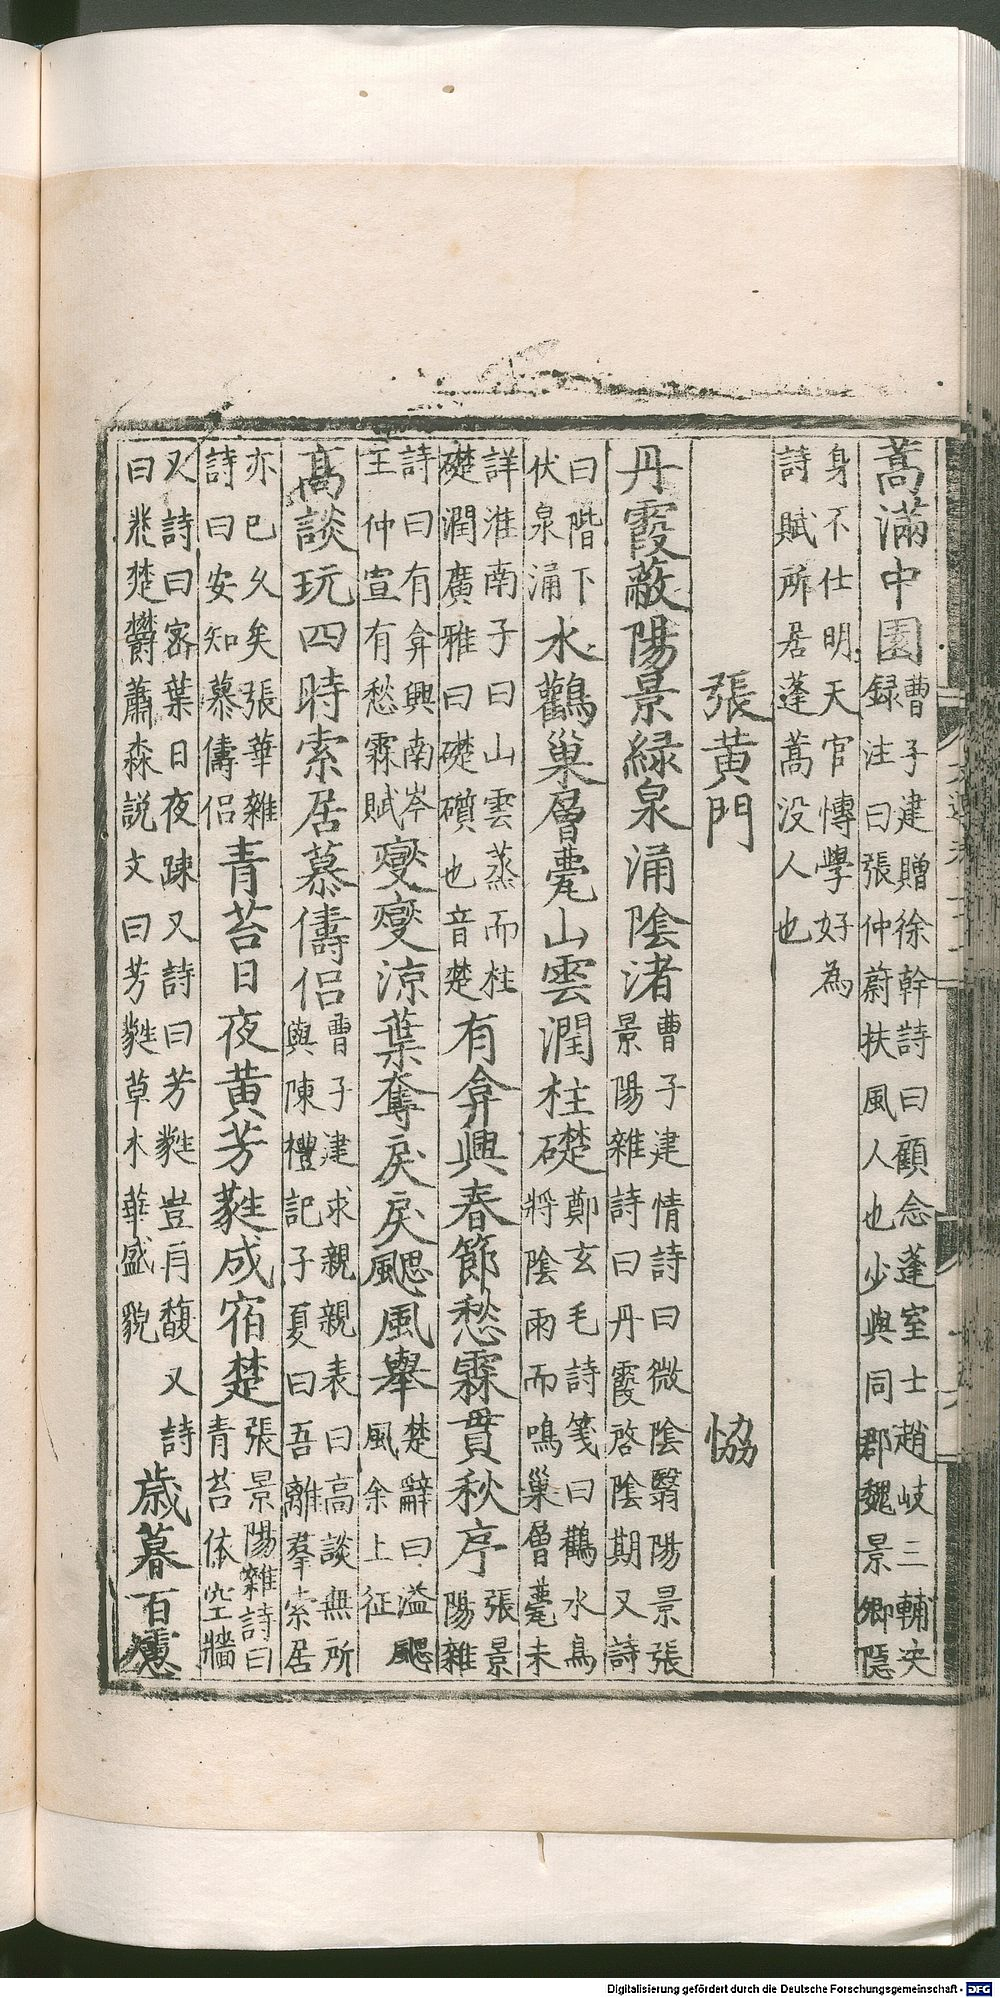 蒿滿中園曹子建贈徐幹詩曰顧念蓬室士趙岐三輔决
録注曰張仲蔚扶風人也少與同郡魏景卿隱
身不仕明天官愽學好為
詩賦所居蓬蒿没人也
張黄門 恊
丹霞蔽陽景緑泉涌陰渚曹子建情詩曰微陰翳陽景張
景陽雜詩曰丹霞啓陰期又詩
曰階下
伏泉涌水鸛巢層甍山雲潤柱礎鄭玄毛詩箋曰鸛水鳥
將陰雨而鳴巢層甍未
詳淮南子曰山雲蒸而柱
礎潤廣雅曰礎礩也音楚有弇興春節愁霖貫秋序張景
陽雜
詩曰有弇興南岑
王仲宣有愁霖賦燮燮涼葉奪戾戾颸風舉楚辭曰溢颸
風余上征
高談玩四時索居慕儔侣曹子建求親親表曰高談無所
與陳禮記子夏曰吾離羣索居
亦已久矣張華雜
詩曰安知慕儔侣青苔日夜黄芳蕤成宿楚張景陽雜詩曰
青苔依空牆
又詩曰宻葉日夜踈又詩曰芳蕤豈再馥又詩
曰㳽楚鬱蕭森説文曰芳蕤草木華盛貌歳暮百慮
Digitalisierung gefördert durch die Deutsche Forschungsgemeinschaft - DFG